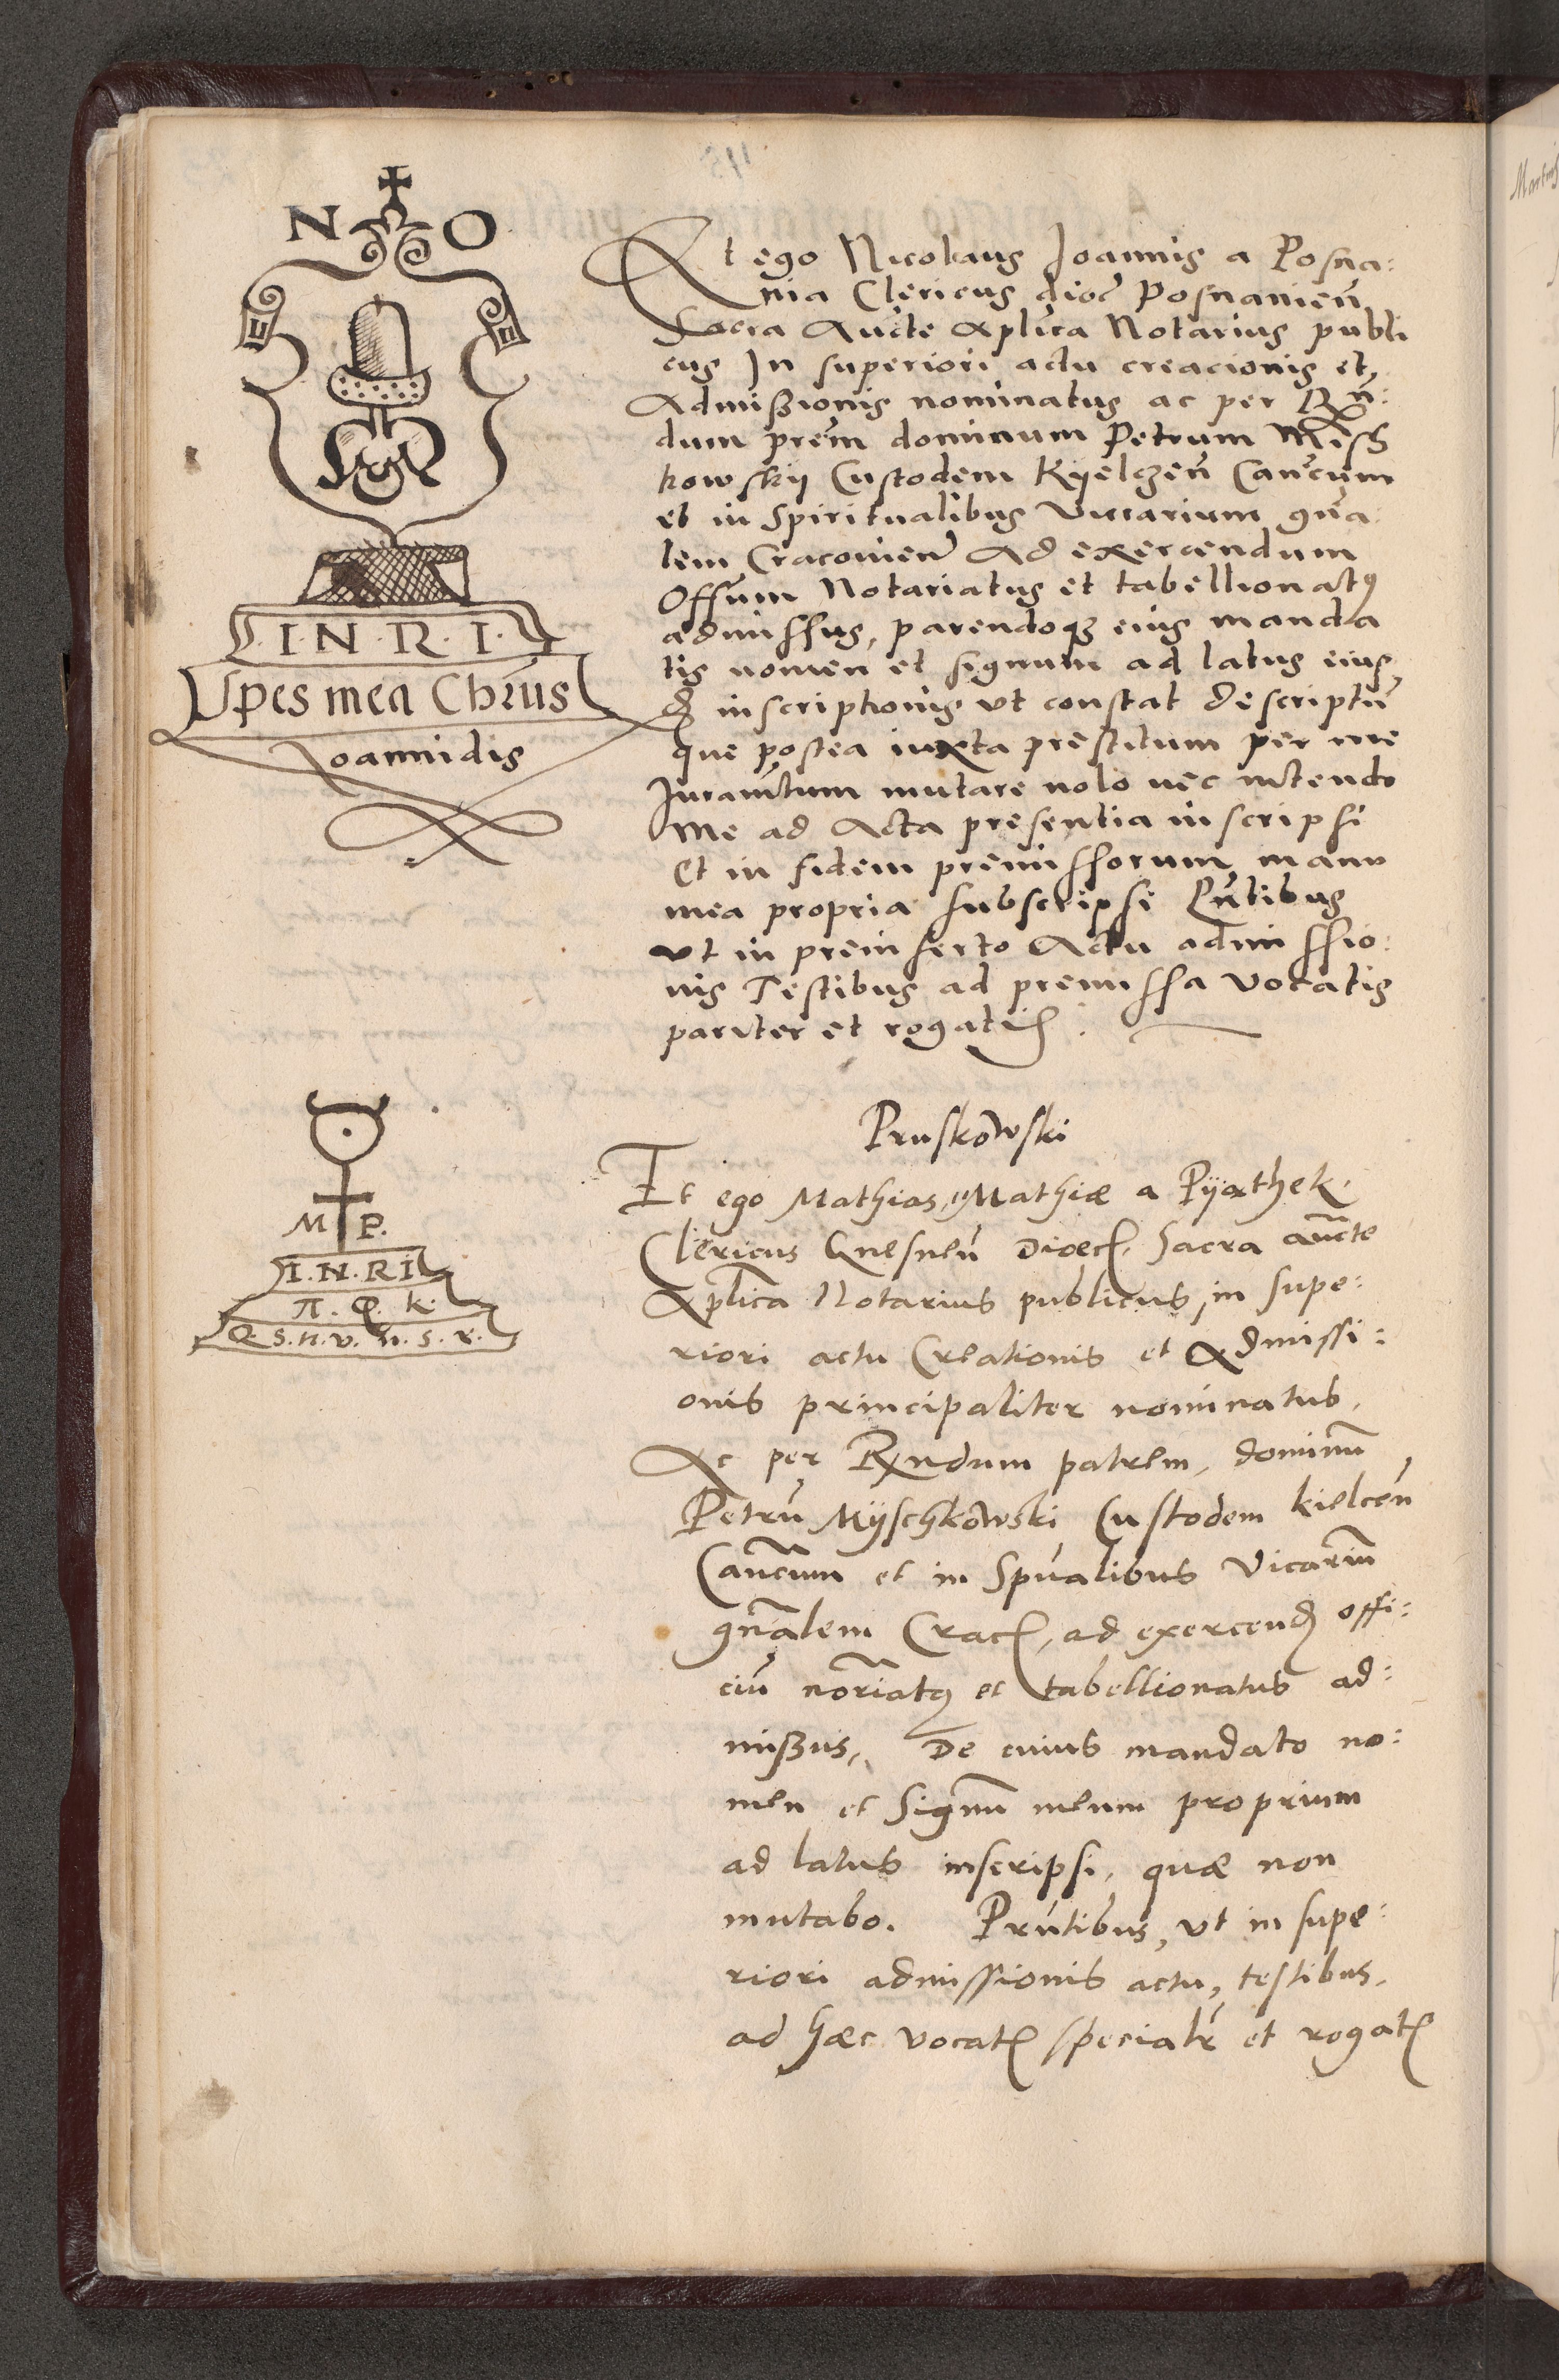 N O
I. N. R. I.
Spes mea Chrus
Joannidis
Et ego Nicolaus Joannis a Posna:
nia Clericus dioc Posnanien
Sacra Aucte Aplica Notarius publi
cus In superiori actu creacionis et
Admißionis nominatus ac per Rn:
dum prem dominum Petrum Misch
kowskij Custodem Kyelczen Cancum
et in Spiritualibus Vicarium gna
lem Cracovien Ad exercendum
Offum Notariatus et tabellionatus
admissus, parendoq eius manda
tis nomen et signum ad latus eius
d inscriptionis ut constat descriptu
que postea iuxta prestitum per me
Juramtum mutare nolo nec intendo
Me ad Acta presentia inscripsi
Et in fidem premissorum manu
mea propria subscripsi Pntibus
ut in preinserto Actu admissio:
nis Testibus ad premissa vocatis
pariter et rogatis.
M P.
I. N. RI
π. Q. k.
Q. s. n. v. n. s. r.
Pruskowski
Et ego Mathias, Mathiæ a Pÿathek.
Clericus Gnesnen Dioec. Sacra aucte
Aplica Notarius publicus, in supe:
riori actu Creationis et Admissi:
onis principaliter nominatus,
Ac per Rndum patrem, dominu
Petru Mÿschkowski Custodem kielcen
Cancum et in Spualibus Vicariu
gnalem Crac, ad exercend offi:
ciu noriatus et tabellionatus ad:
mißus, De cuius mandato no:
men et Signu meum proprium
ad latus inscripsi, quæ non
mutabo. Prntibus, ut in supe:
riori admissionis actu, testibus,
ad hæc vocatis specialr et rogatis